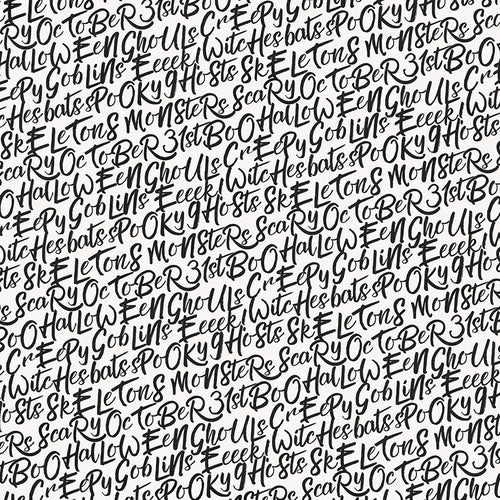 OcToBeR 31st BoO
HalLoWEEn GhoUls CrEePy
CrEePy GobLiNs' Eeeek! WitcHes bats sPoOky
WitcHes bats sPoOky gHosts SkELeTonS
SkELeTonS MonSteRs ScaRy OcToBeR 31st BoO
ScaRy OcToBeR 31st BoO HalLoWEEn GhoUls
BoO HalLoWEEn GhoUls CrEePy GobLiNs' Eeeek!
CrEePy GobLiNs' Eeeek! WitcHes bats sPoOky
WitcHes bats sPoOky gHosts SkELeTonS MonSteRs
SkELeTonS MonSteRs ScaRy OcToBeR 31st
ScaRy OcToBeR 31st BoO HalLoWEEn
BoO HalLoWEEn GhoUls CrEePy GobLiNs'
CrEePy GobLiNs' Eeeek! WitcHes bats
WitcHes bats sPoOky gHosts SkELeTonS
SkELeTonS MonSteRs ScaRy OcToBeR 31st
ScaRy OcToBeR 31st BoO HalLoWEEn
BoO HalLoWEEn GhoUls CrEePy GobLiNs'
GobLiNs' Eeeek! WitcHes bats sPoOky gHosts
SkELeTonS